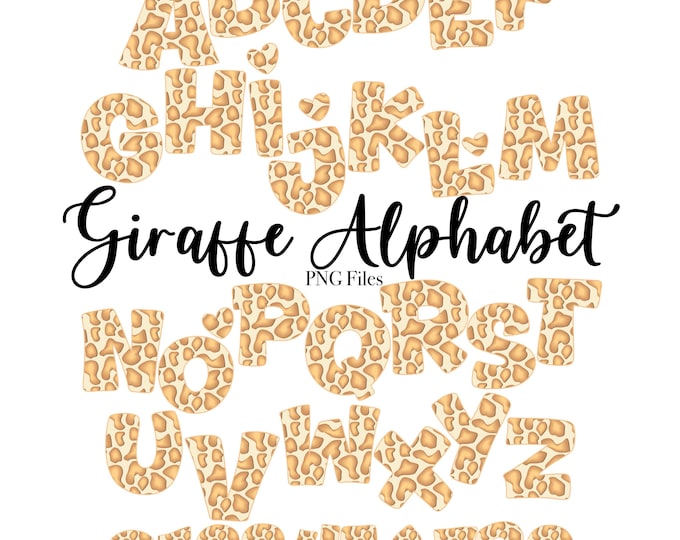 ABCDEF
GHijKLM
Giraffe Alphabet
PNG Files
NOPQRST
UVWXYZ